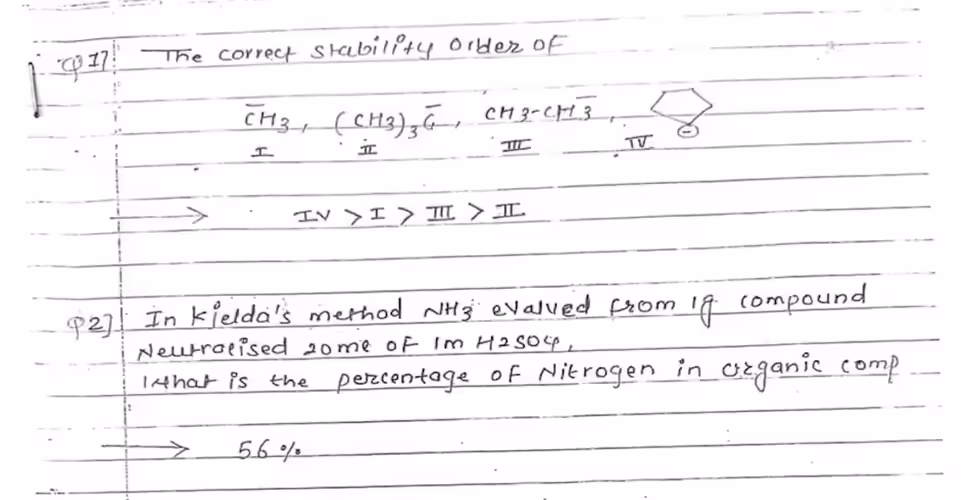 Q1] The correct stability order of
C̅H3, (CH3)3C̅, CH3-CH3̅,
I II III IV
⊖
→ IV > I > III > II
Q2] In kjelda's method NH3 evalved from 1g compound
Neutralised 20ml of 1m H2SO4,
What is the percentage of Nitrogen in organic comp
→ 56%